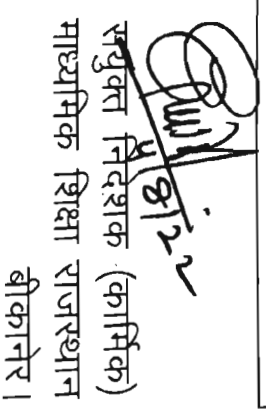 4/8/22
संयुक्त निदेशक (कार्मिक)
माध्यमिक शिक्षा राजस्थान
बीकानेर।